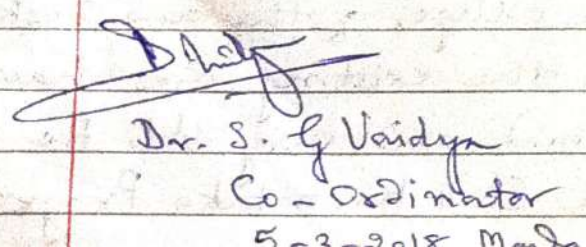 Dr. S. G Vaidya
Co-Ordinator
5-3-2018